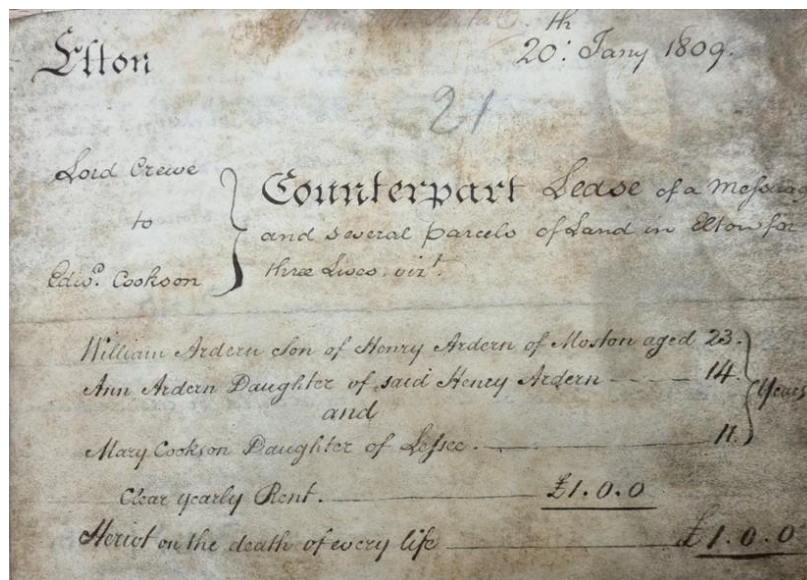 Elton
20:th Jany 1809.
21
Lord Crewe
to
Edwd. Cookson
Counterpart Lease of a Messuage
and several parcels of Land in Elton for
three Lives. vizt.
William Ardern Son of Henry Ardern of Moston aged 23.
Ann Ardern Daughter of said Henry Ardern 14.
and
Years
Mary Cookson Daughter of Lessee. 11.
Clear yearly Rent. £1.0.0
Heriot on the death of every life £1.0.0